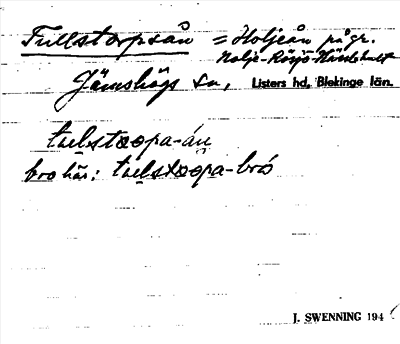 Tullstorpsån = Holjeån på gr.
Nolje-Röjö-Härdshult
Jämshögs sn, Listers hd, Blekinge län.
tu̠lstoopa-án
bro här: tu̠lstoopa-bró
J. SWENNING 194